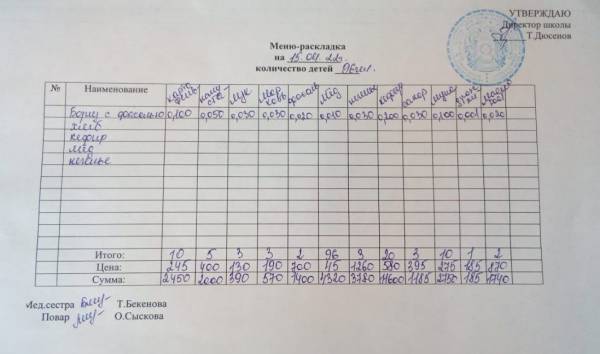 УТВЕРЖДАЮ
Директор школы
Т.Дюсенов
Меню-раскладка
на 15.04.22г.
количество детей
№ Наименование карто фель капу ста лук мор ковь фасоль мёд кефир сахар мука
Борщ с фасолью 0,100 0,050 0,030 0,030 0,020 0,010 0,030 0,200 0,030 0,100 0,001 0,020
хлеб
кефир
мёд
печенье
Итого: 10 5 3 3 2 96 3 20 3 10 1 2
Цена: 245 400 130 190 700 45 1260 580 395 275 185 870
Сумма: 2450 2000 390 570 1400 4320 3780 11600 1185 2750 185 1740
Мед.сестра Т.Бекенова
Повар О.Сыскова